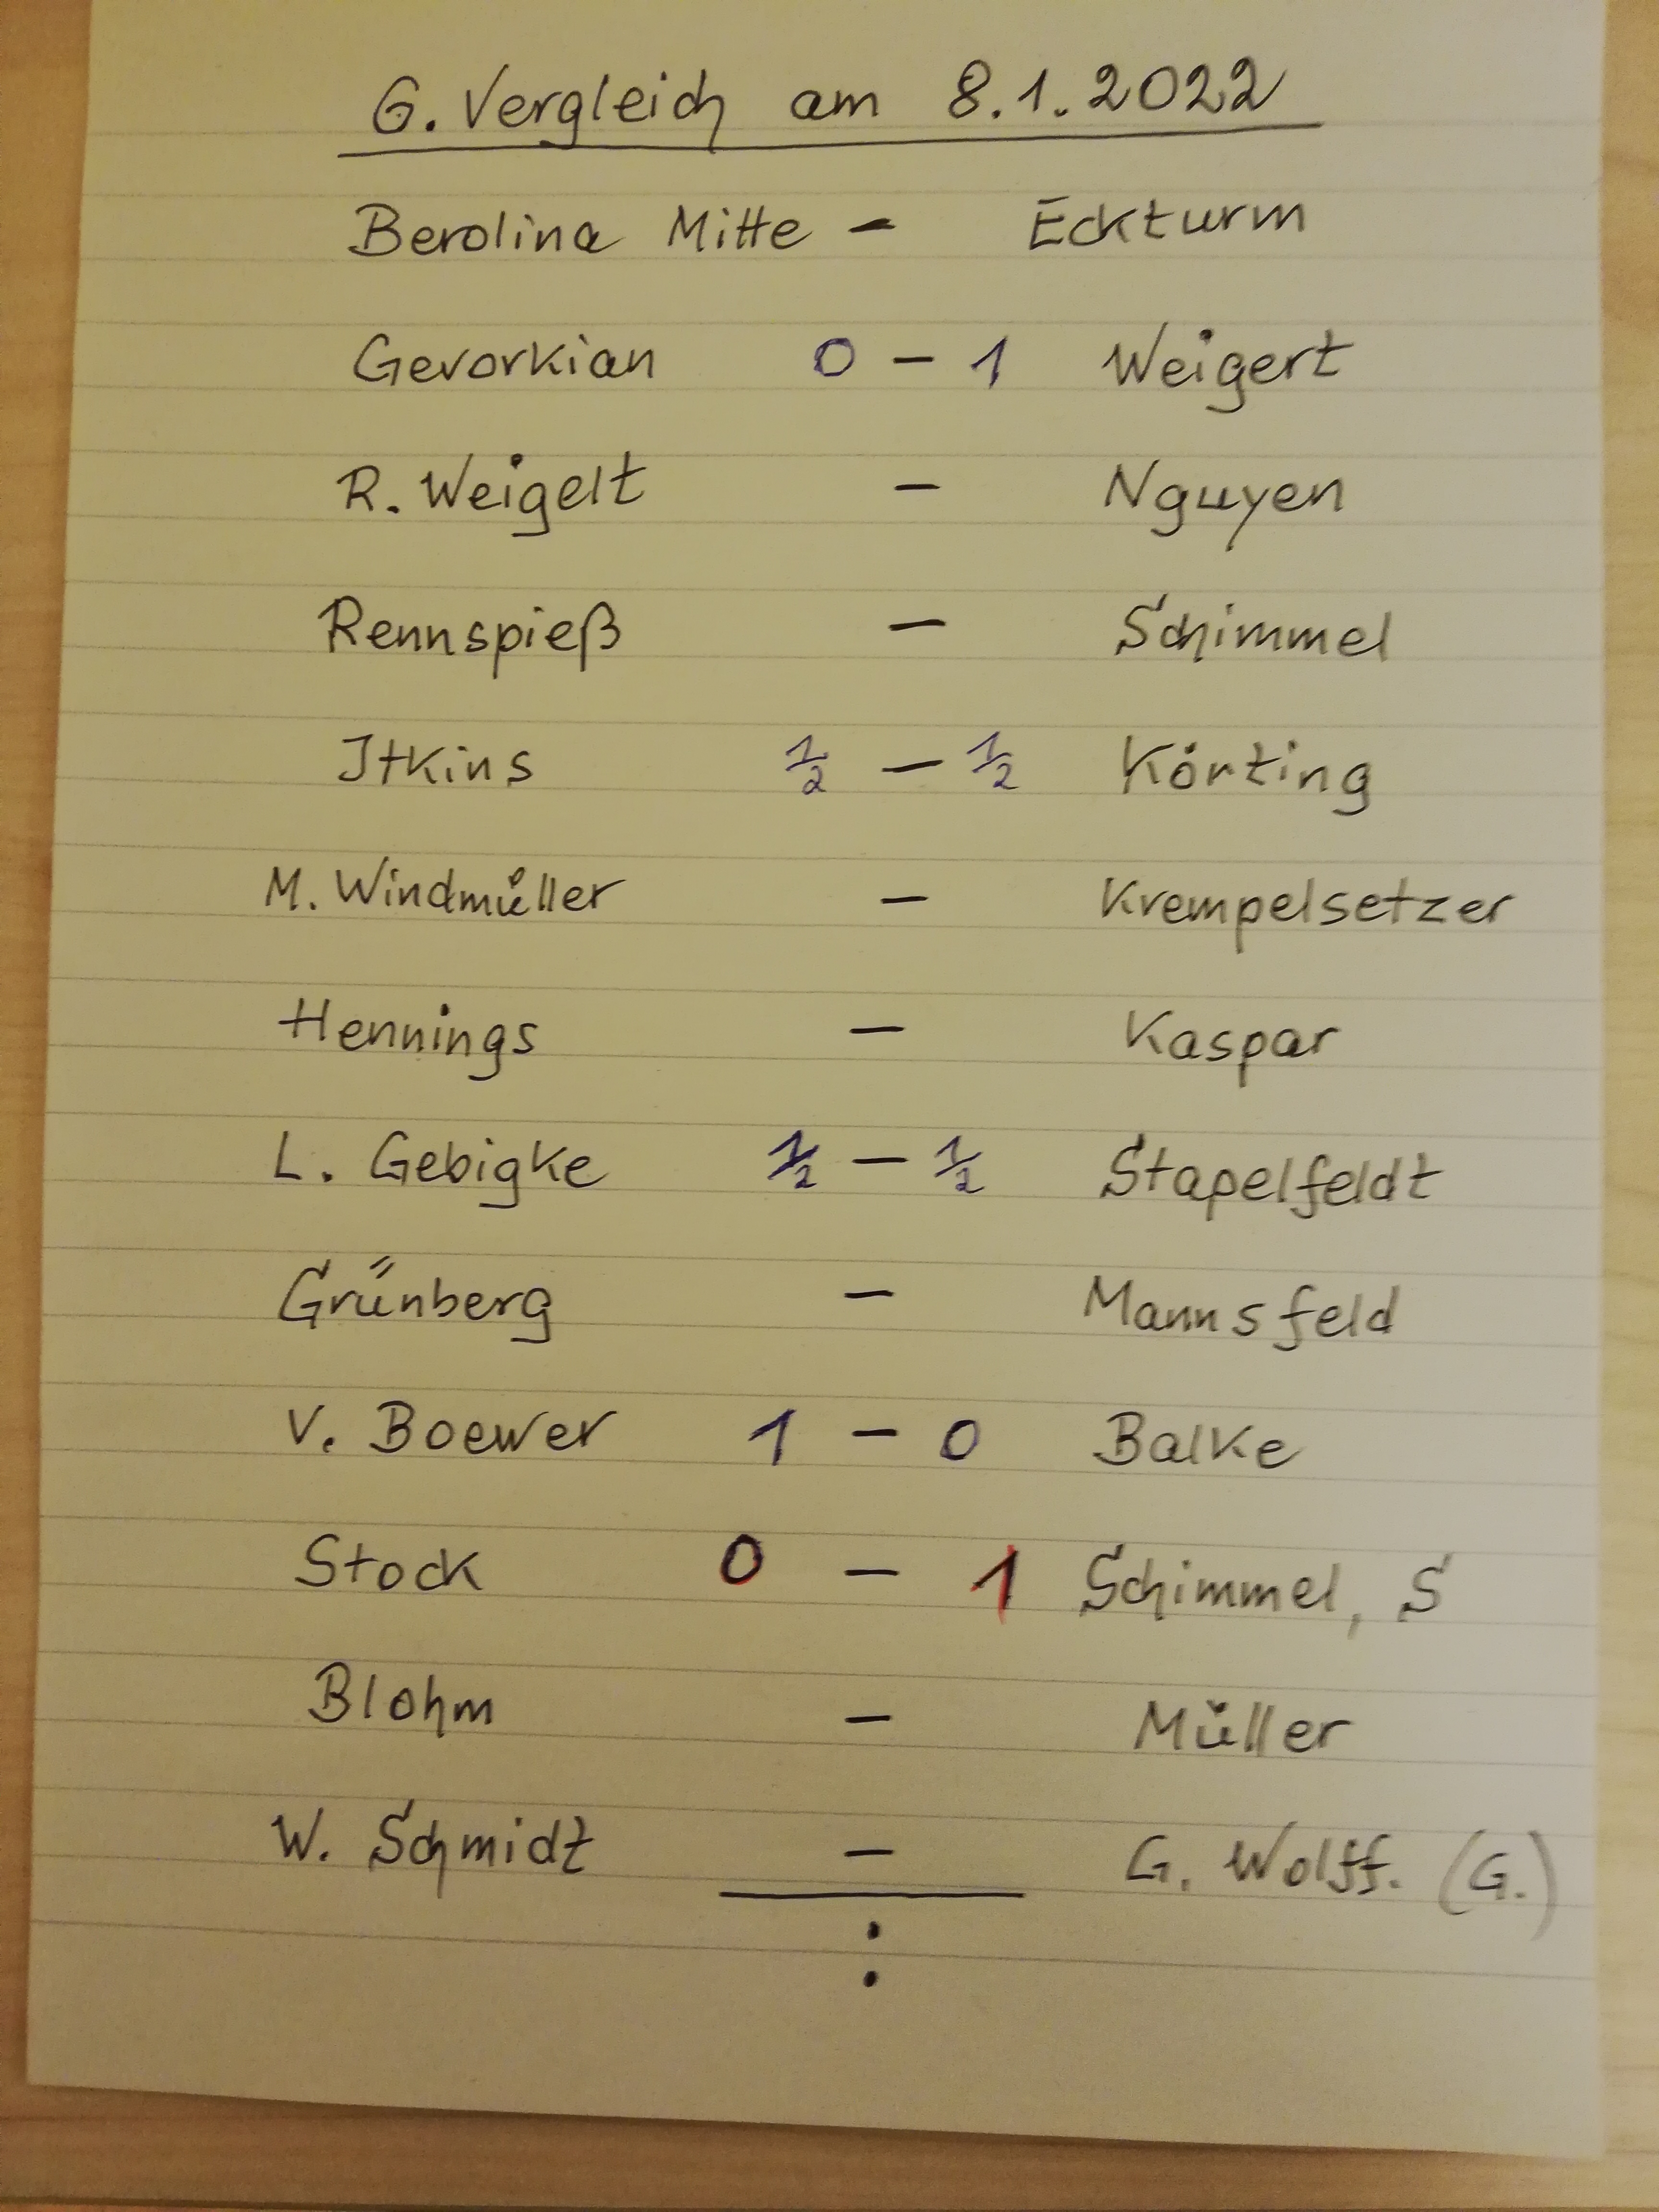 G. Vergleich am 8.1.2022
Berolina Mitte - Eckturm
Gevorkian 0 - 1 Weigert
R. Weigelt - Nguyen
Rennspieß - Schimmel
Itkins ½ - ½ Körting
M. Windmüller - Krempelsetzer
Hennings - Kaspar
L. Gebigke ½ - ½ Stapelfeldt
Grünberg - Mannsfeld
V. Boewer 1 - 0 Balke
Stock 0 - 1 Schimmel, S
Blohm - Müller
W. Schmidt - G. Wolff. (G.)
: